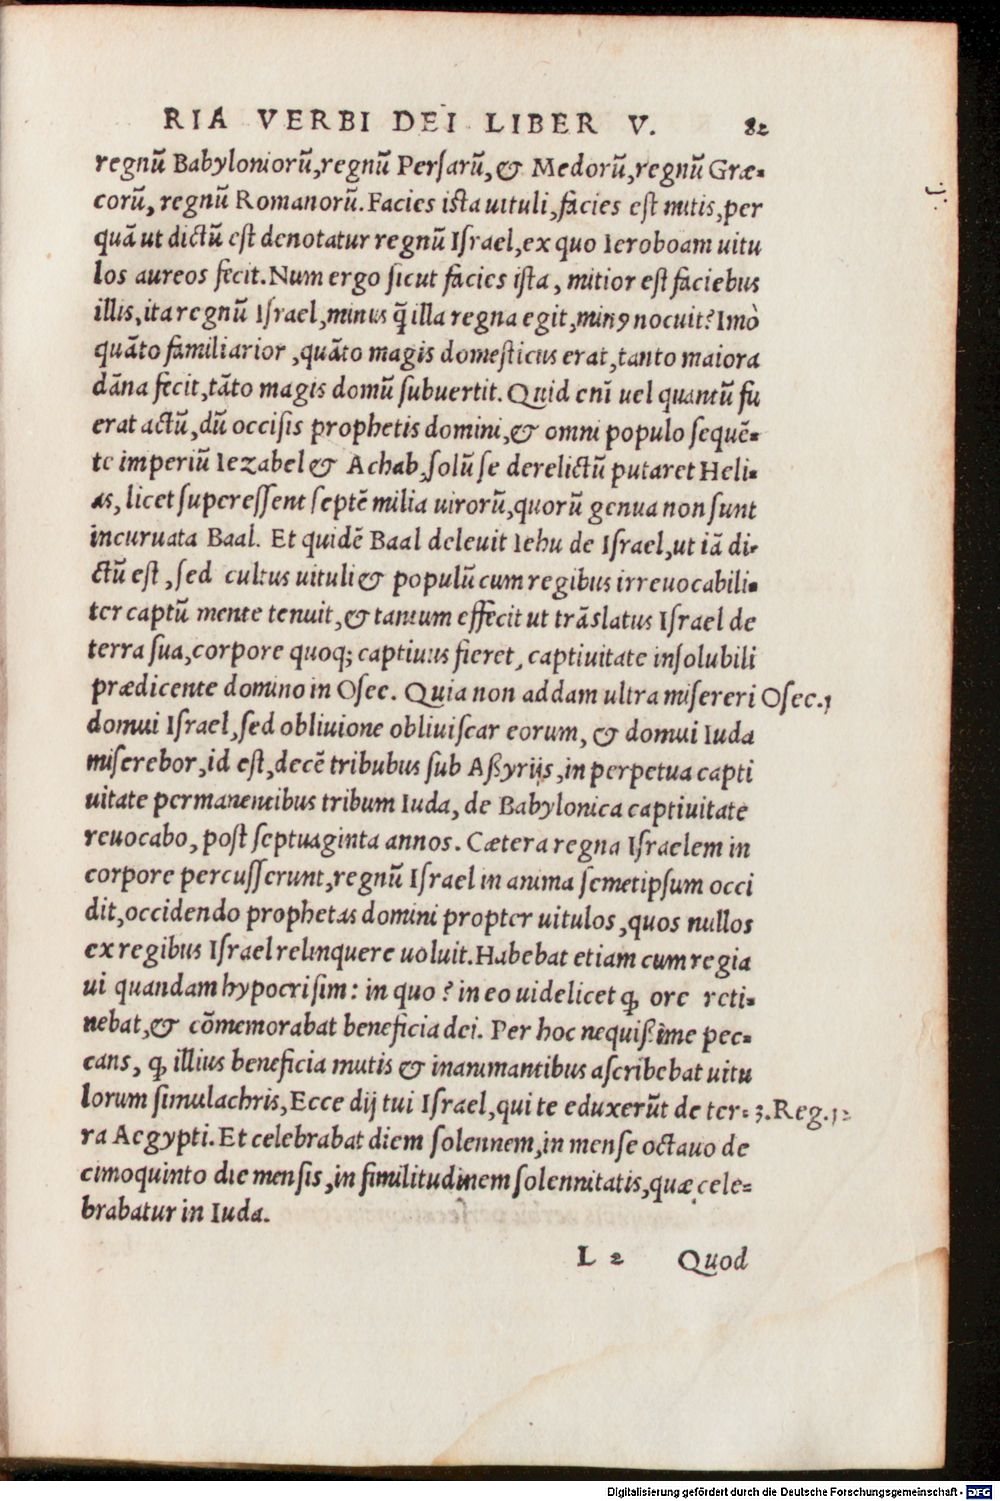 RIA VERBI DEI LIBER V. 82
regnũ Babyloniorũ, regnũ Persarũ, & Medorũ, regnũ Græ-
corũ, regnũ Romanorũ. Facies ista uituli, facies est mitis, per
quã ut dictũ est denotatur regnũ Israel, ex quo Ieroboam uitu
los aureos fecit. Num ergo sicut facies ista, mitior est faciebus
illis, ita regnũ Israel, minus q̃ illa regna egit, minꝰ nocuit? Imò
quãto familiarior, quãto magis domesticus erat, tanto maiora
dãna fecit, tãto magis domũ subuertit. Quid eni͂ uel quantũ fu
erat actũ, dũ occisis prophetis domini, & omni populo sequẽ-
te imperiũ Iezabel & Achab, solũ se derelictũ putaret Heli-
as, licet superessent septẽ milia uirorũ, quorũ genua non sunt
incuruata Baal. Et quidẽ Baal deleuit Iehu de Israel, ut iã di-
ctũ est, sed cultus uituli & populũ cum regibus irreuocabili-
ter captũ mente tenuit, & tantum effecit ut trãslatus Israel de
terra sua, corpore quoq; captiuus fieret, captiuitate insolubili
prædicente domino in Osee. Quia non addam ultra misereri Osec.1
domui Israel, sed obliuione obliuiscar eorum, & domui Iuda
miserebor, id est, decẽ tribubus sub Aßyrijs, in perpetua capti
uitate permanentibus tribum Iuda, de Babylonica captiuitate
reuocabo, post septuaginta annos. Cætera regna Israelem in
corpore percusserunt, regnũ Israel in anima semetipsum occi
dit, occidendo prophetas domini propter uitulos, quos nullos
ex regibus Israel relinquere uoluit. Habebat etiam cum regia
ui quandam hypocrisim: in quo? in eo uidelicet ꝙ ore reti-
nebat, & cõmemorabat beneficia dei. Per hoc nequißime pec-
cans, ꝙ illius beneficia mutis & inanimantibus ascribebat uitu
lorum simulachris, Ecce dij tui Israel, qui te eduxerũt de ter- 3.Reg.12
ra Aegypti. Et celebrabat diem solennem, in mense octauo de
cimoquinto die mensis, in similitudinem solennitatis, quæ cele-
brabatur in Iuda.
L 2 Quod
Digitalisierung gefördert durch die Deutsche Forschungsgemeinschaft - DFG